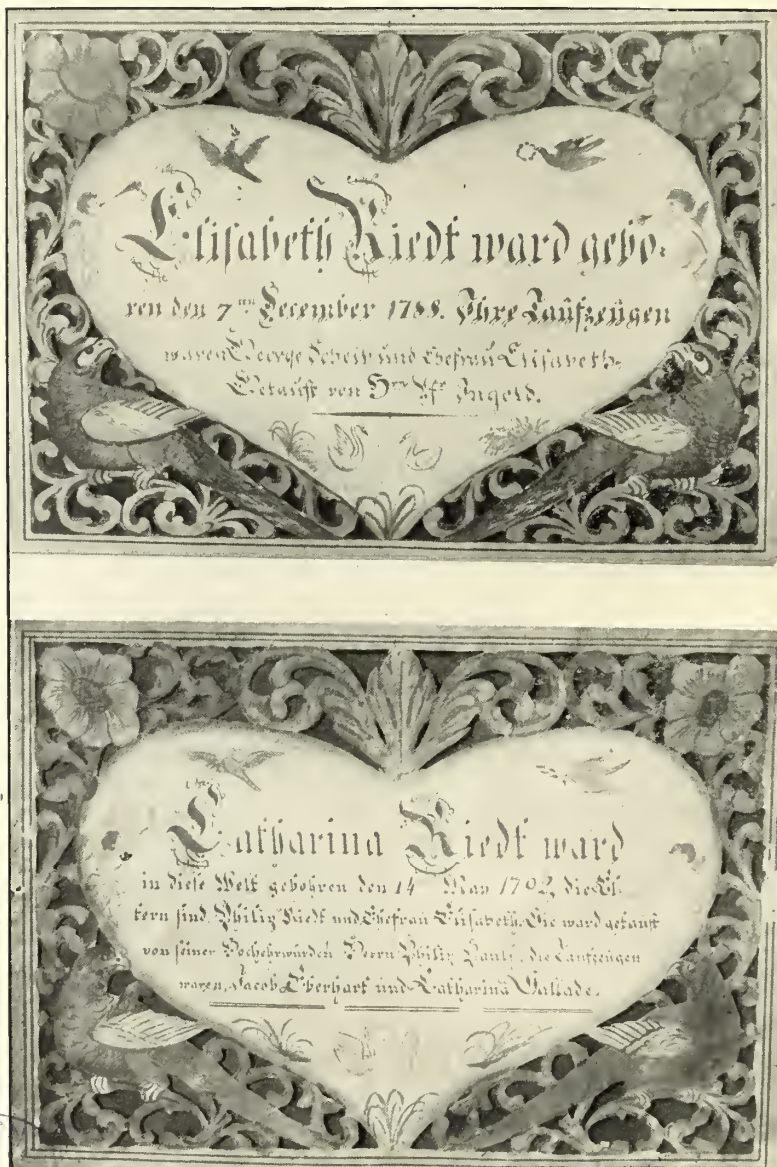 Elisabeth Riedt ward gebo=
ren den 7ten December 1788. Ihre Taufzeügen
waren George Scheir und Ehefrau Elisabeth.
Getaufft von Hrn Pfr Ingold.
Catharina Riedt ward
in diese Welt gebohren den 14 May 1792, die El=
tern sind, Philip Riedt und Ehefrau Elisabeth. Sie ward getauft
von seiner Hochehrwürden Herrn Philip Pauli, die Taufzeügen
waren, Jacob Eberhart und Catharina Vallade.